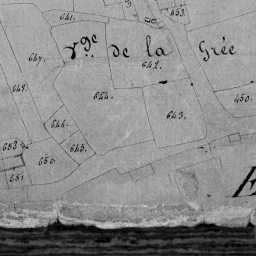 641.
453.
vge. de la Grée
647.
642.
648.
644.
450.
643.
646.
645.
650.
651.